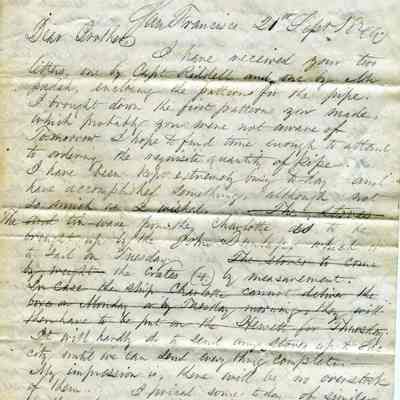 San Francisco 21st Sept
Dear Brother
I have received your two
letters, one by Capt Liddell and one by Mr
enclosing the patterns for the pipe.
I brought down the first patterns you made,
which probably you were not aware of
Tomorrow I hope to find time enough to attend
to ordering the requisite quantity of Pipe.
I have been kept extremely busy to day and
have accomplished something, although not
so much as I wished. The stoves
The and tin ware from the Charlotte is to be
brought up by the John which is
to sail on Tuesday. The stoves to come
by weight the Crates (4) by measurement.
In case the ship Charlotte cannot deliver the
on Monday or by Tuesday morning, they will
then have to be put on the Hewett for Thursday
It will hardly do to send any stoves up to the
city until we can send everything complete.
My impression is, there will be no overstock
of them. I priced some to day on similar